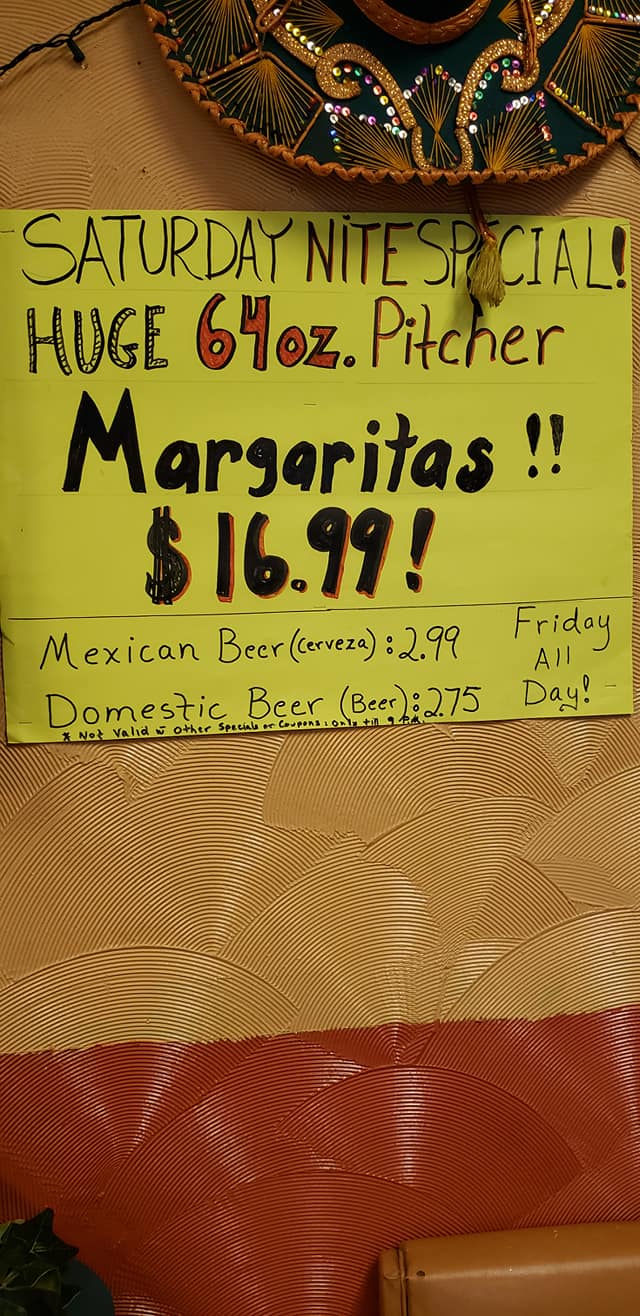 SATURDAY NiTE SPECIAL!
HUGE 64oz. Pitcher
Margaritas !!
$16.99!
Mexican Beer (cerveza): 2.99
Domestic Beer (Beer): 2.75
Friday
All
Day!
* Not Valid w Other Specials or Coupons: Only till 9 P.M.